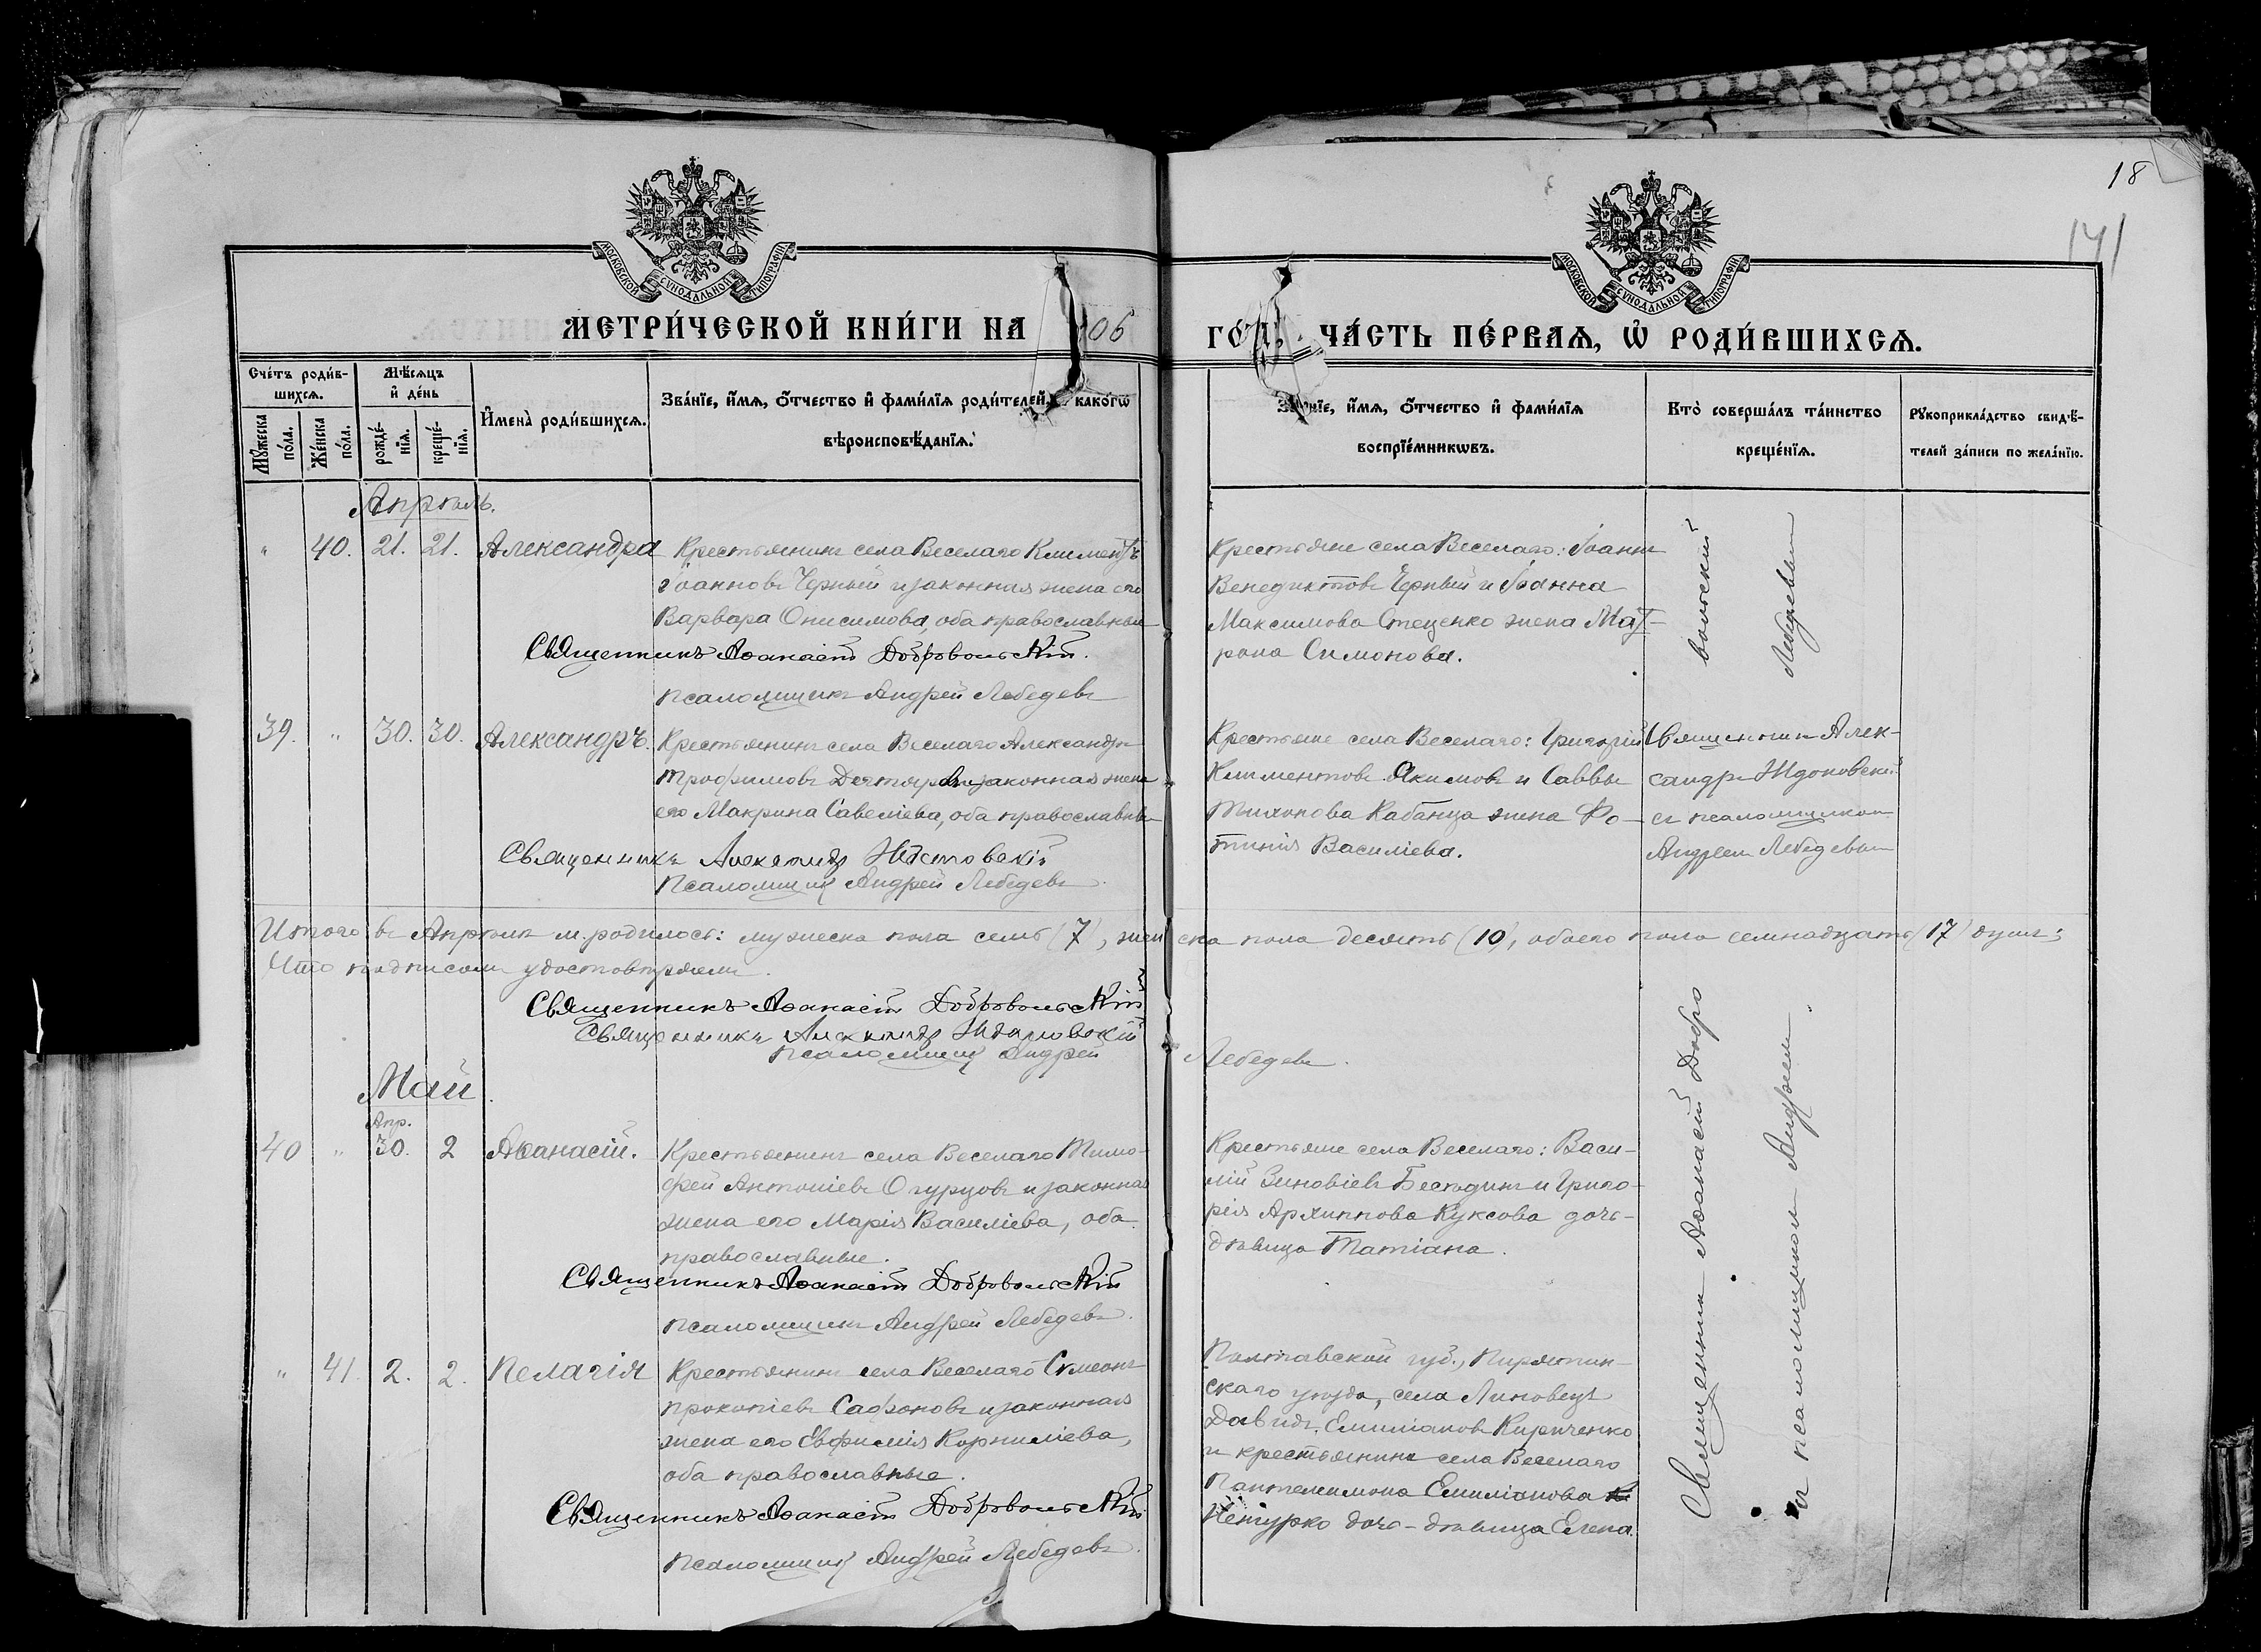 18
141
МОСКОВСКОЙ СУНОДАЛЬНОЙ ТИПОГРАФІИ
МОСКОВСКОЙ СУНОДАЛЬНОЙ ТИПОГРАФІИ
МЕТРИ́ЧЕСКОЙ КНИ́ГИ НА 06
ЧА́СТЬ ПЕ́РВАѦ, Ѡ҆ РОДИ́ВШИХСѦ.
Сче́тъ роди́в-
шихсѧ.
Мꙋ́жеска по́ла.
Же́нска по́ла.
Мѣ́сѧцъ
и҆ де́нь
рожде́-
нїѧ.
креще́-
нїѧ.
И҆мена̀ роди́вшихсѧ.
Зва́нїе, и҆́мѧ, ѻ҆́тчество и҆ фами́лїѧ роди́телей, како́гѡ
вѣроисповѣ́данїѧ.
и҆́мѧ, ѻ҆́тчество и҆ фами́лїѧ
воспрїе́мникѡвъ.
Кто̀ соверша́лъ та́инство
креще́нїѧ.
Рꙋкоприкла́дство свидѣ́-
телей за́писи по жела́нїю.
Апрѣль.
" 40. 21. 21. Александра
Крестьянинъ села Веселаго Климентъ
Іоанновъ Черный и законная жена его
Варвара Онисимова, оба православные
Священникъ Аѳанасій Добровольскій.
Псаломщикъ Андрей Лебедевъ
Крестьяне села Веселаго: Іоаннъ
Венедиктовъ Черный и Іоанна
Максимова Стеценко жена Мат-
рона Симонова.
вольскій
Лебедевым
39. " 30. 30. Александръ.
Крестьянинъ села Веселаго Александръ
Трофимовъ Дегтяревъ и законная жена
его Макрина Савеліева, оба православные
Священникъ Александр Ждановскій
Псаломщик Андрей Лебедевъ.
Крестьяне села Веселаго: Григорій
Климентовъ Якимовъ и Саввы
Тихонова Кабанца жена Фо-
тинія Василіева.
Священникъ Алек-
сандръ Ждановскій
съ псаломщиком
Андреем Лебедевым
Итого въ Апрѣлѣ м. родилось: мужеска пола семь (7), женска пола десять (10), обоего пола семнадцать (17) душъ;
Что подписомъ удостовѣряемъ.
Священникъ Аѳанасій Добровольскій
Священникъ Александр Ждановскій
Псаломщик Андрей Лебедевъ.
Май.
Апр.
40 " 30. 2 Аѳанасій.
Крестьянинъ села Веселаго Тимо-
фей Антоніевъ Огурцовъ и законная
жена его Марія Василіева, оба
православные.
Священникъ Аѳанасій Добровольскій
Псаломщикъ Андрей Лебедевъ.
Крестьяне села Веселаго: Васи-
лій Зиновіевъ Бесѣдинъ и Григо-
рія Архиппова Куксова дочь-
дѣвица Татіана.
" 41. 2. 2. Пелагія
Крестьянинъ села Веселаго Сумеонъ
Прокопіевъ Сафоновъ и законная
жена его Евфимія Корниліева,
оба православные.
Священникъ Аѳанасій Добровольскій
Псаломщик Андрей Лебедевъ.
Полтавской губ., Пирятин-
скаго уѣзда, села Линовецъ
Давидъ Емиліановъ Кириченко
и крестьянина села Веселаго
Пантелеимона Емиліанова
дочь-дѣвица Елена.
Священник Аѳанасій Добро
съ псаломщиком Андреем